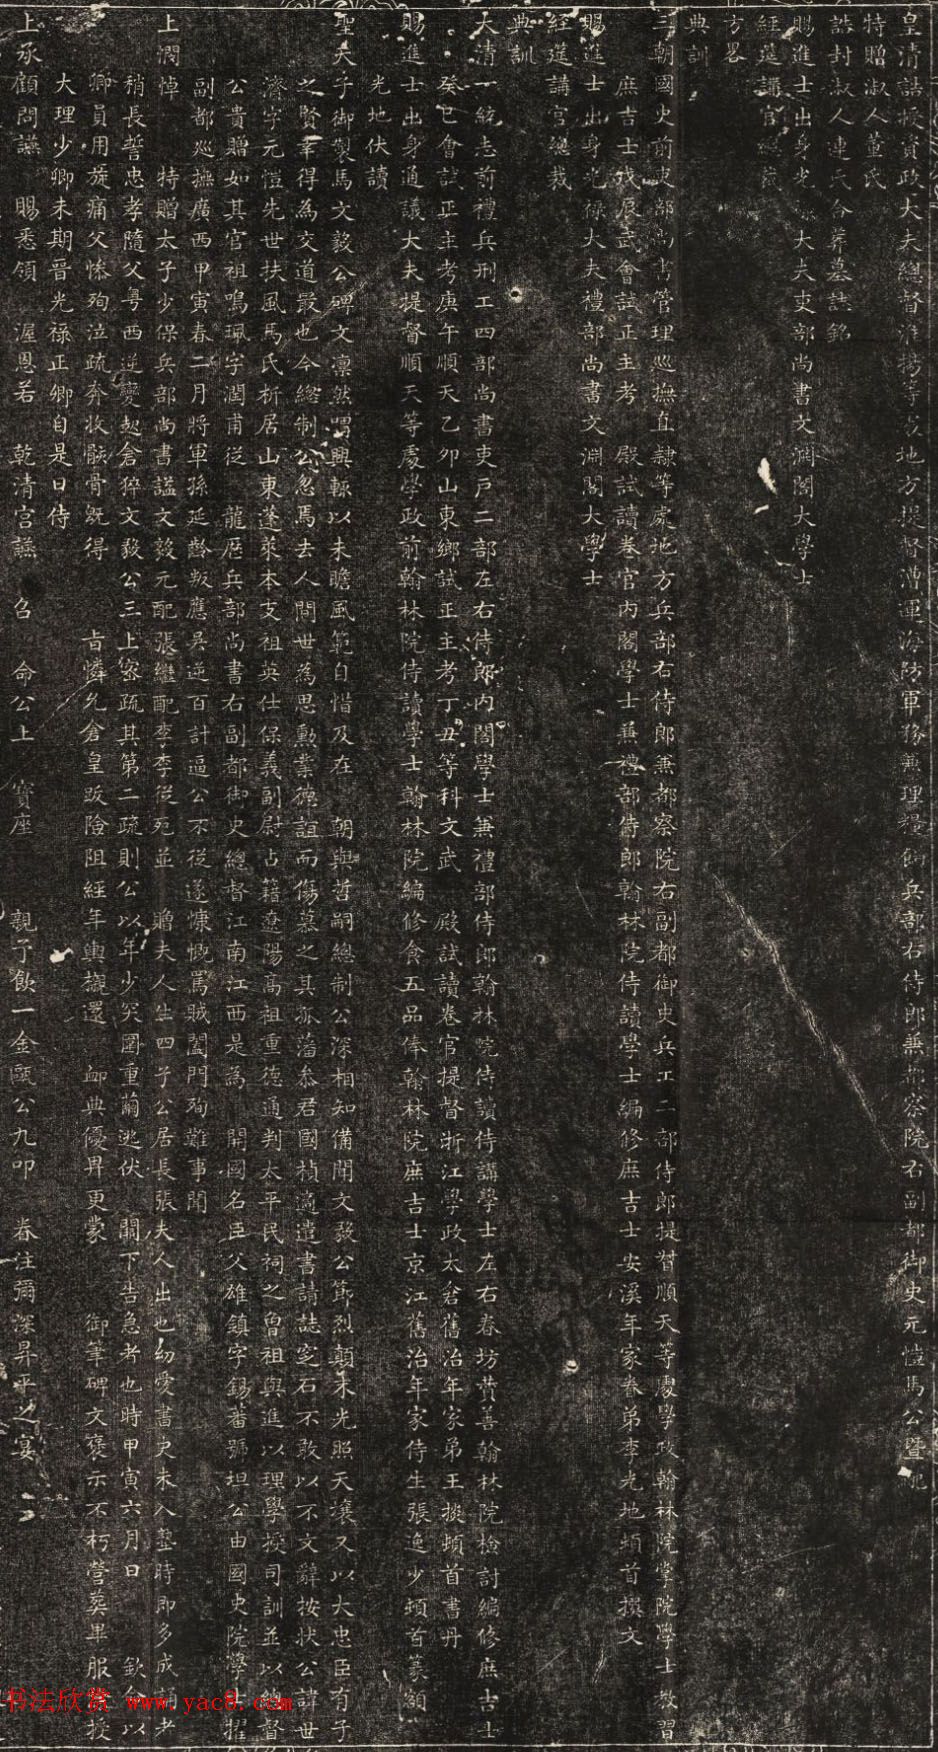 皇清誥授資政大夫總督淮揚等處地方提督漕運海防軍務兼理糧餉兵部右侍郎兼都察院右副都御史元愷馬公暨配
特贈淑人董氏
誥封淑人連氏合葬墓誌銘
賜進士出身光祿大夫吏部尚書文淵閣大學士
經筵講官總裁
方畧
典訓
三朝國史前吏部尚書管理巡撫直隸等處地方兵部右侍郎兼都察院右副都御史兵工二部侍郎提督順天等處學政翰林院掌院學士教習
庶吉士戊辰武會試正主考 殿試讀卷官內閣學士兼禮部侍郎翰林院侍讀學士編修庶吉士安溪年家眷弟李光地頓首撰文
賜進士出身光祿大夫禮部尚書文淵閣大學士
經筵講官總裁
典訓
大清一統志前禮兵刑工四部尚書吏戶二部左右侍郎內閣學士兼禮部侍郎翰林院侍讀侍講學士左右春坊贊善翰林院檢討編修庶吉士
癸巳會試正主考庚午順天乙卯山東鄉試正主考丁丑等科文武 殿試讀卷官提督浙江學政太倉舊治年家弟王掞頓首書丹
賜進士出身通議大夫提督順天等處學政前翰林院侍讀學士翰林院編修食五品俸翰林院庶吉士京江舊治年家侍生張逸少頓首篆額
光地伏讀
聖天子御製馬文毅公碑文凛然喟興輒以未瞻風範自惜及在 朝與哲嗣總制公深相知備聞文毅公節烈顛末光照天壤又以大忠臣有子
之賢幸得為交道最也今總制公忽焉去人間世為思勳業德誼而傷慕之其孤藩叅君國楨適遣書請誌窆石不敢以不文辭按狀公諱世
濟字元愷先世扶風馬氏析居山東蓬萊本支祖英仕保義副尉占籍遼陽高祖重德通判太平民祠之曾祖與進以理學授司訓並以總督
公貴贈如其官祖鳴珮字潤甫從 龍歷兵部尚書右副都御史總督江南江西是為 開國名臣父雄鎮字錫蕃號坦公由國史院學士擢
副都巡撫廣西甲寅春二月將軍孫延齡叛應吳逆百計逼公不從遂慷慨罵賊闔門殉難事聞
上憫悼 特贈太子少保兵部尚書諡文毅元配張繼配李李從死並 贈夫人生四子公居長張夫人出也幼愛書史未入塾時即多成誦者
稍長誓忠孝隨父粵西逆變起倉猝文毅公三上密疏其第二疏則公以年少突圍重繭逃伏 闕下告急者也時甲寅六月日 欽命以
卿員用旋痛父慘殉泣疏奔收骸骨旣得 旨憐允倉皇跋險阻經年輿櫬還 卹典優畀更蒙 御筆碑文褒示不朽營葬畢服闋授
大理少卿未期晉光祿正卿自是日侍
上承顧問讌 賜悉領 渥恩若 乾清宮讌 召 命公上 寶座 親予飲一金甌公九叩 眷注彌深昇平之宴
书法欣赏 www.yac8.com